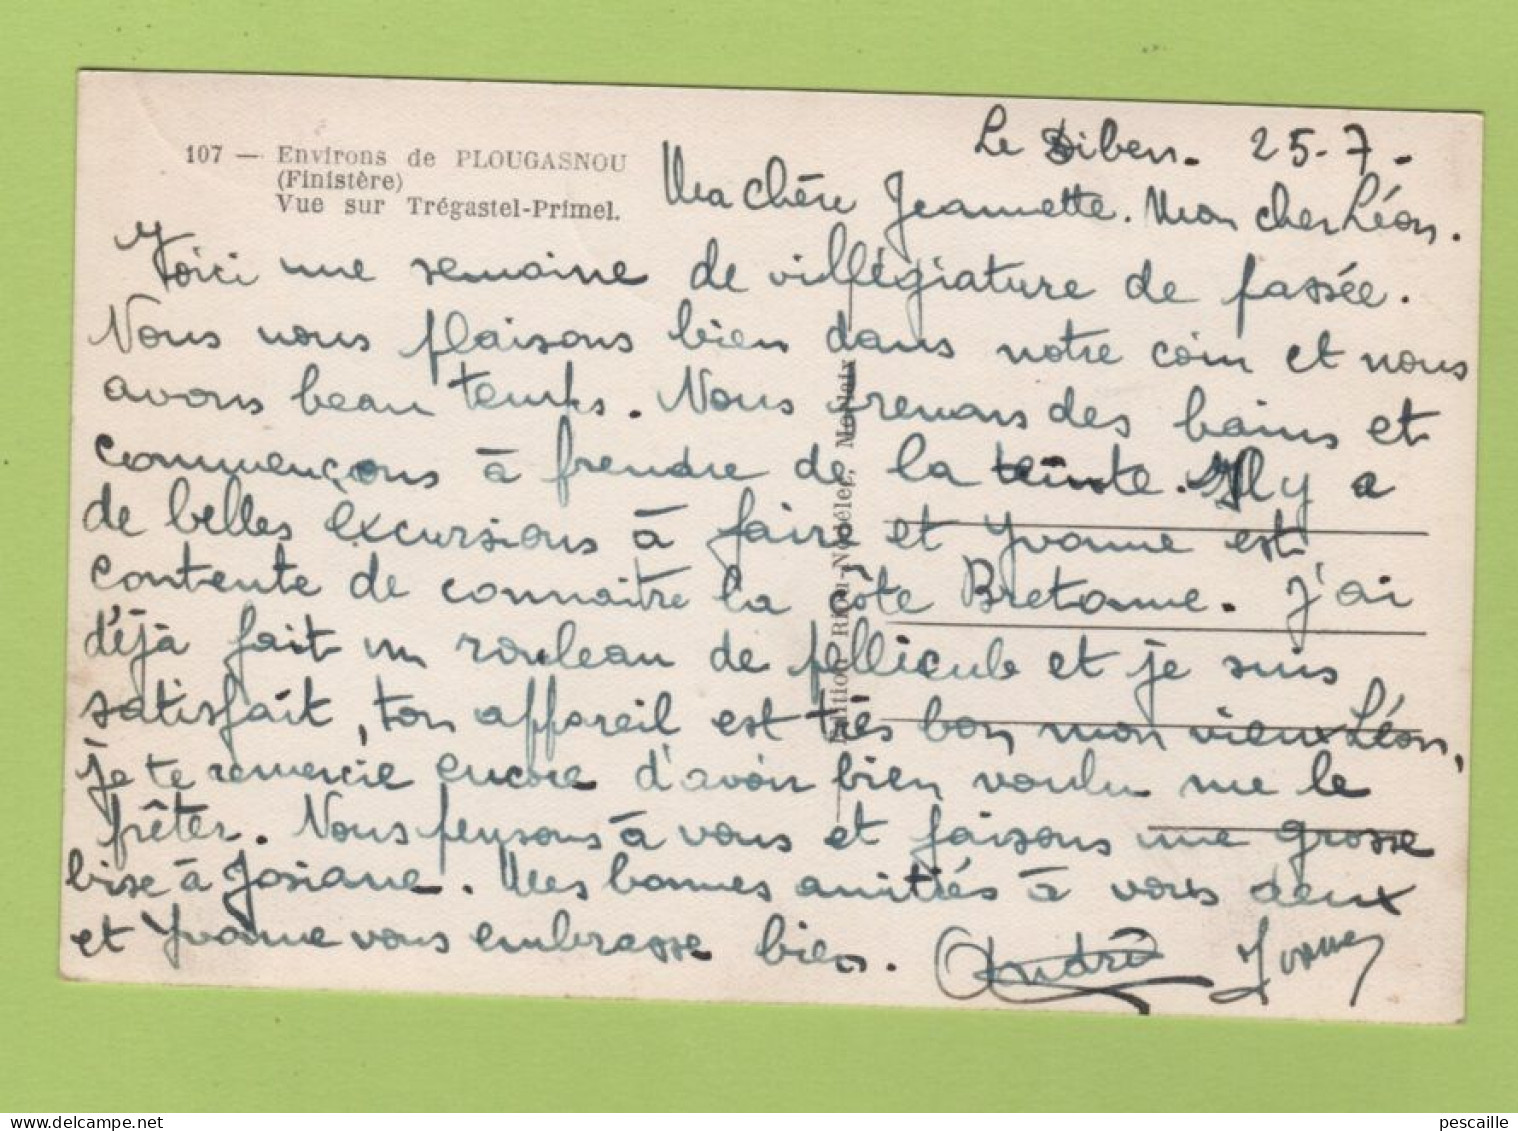 107 — Environs de PLOUGASNOU
(Finistère)
Vue sur Trégastel-Primel.
Le Diben. 25-7-
Ma chère Jeannette. Mon cher Léon.
Voici une semaine de villégiature de passée.
Nous nous plaisons bien dans notre coin et nous
avons beau temps. Nous prenons des bains et
commençons à prendre de la teinte. Il y a
de belles excursions à faire et Yvonne est
contente de connaitre la côte Bretonne. J'ai
déjà fait un rouleau de pellicule et je suis
satisfait, ton appareil est très bon mon vieux Léon,
je te remercie encore d'avoir bien voulu me le
prêter. Nous pensons à vous et faisons une grosse
bise à Josiane. Mes bonnes amitiés à vous deux
et Yvonne vous embrasse bien. André Yvonne
Morlaix
pescaille